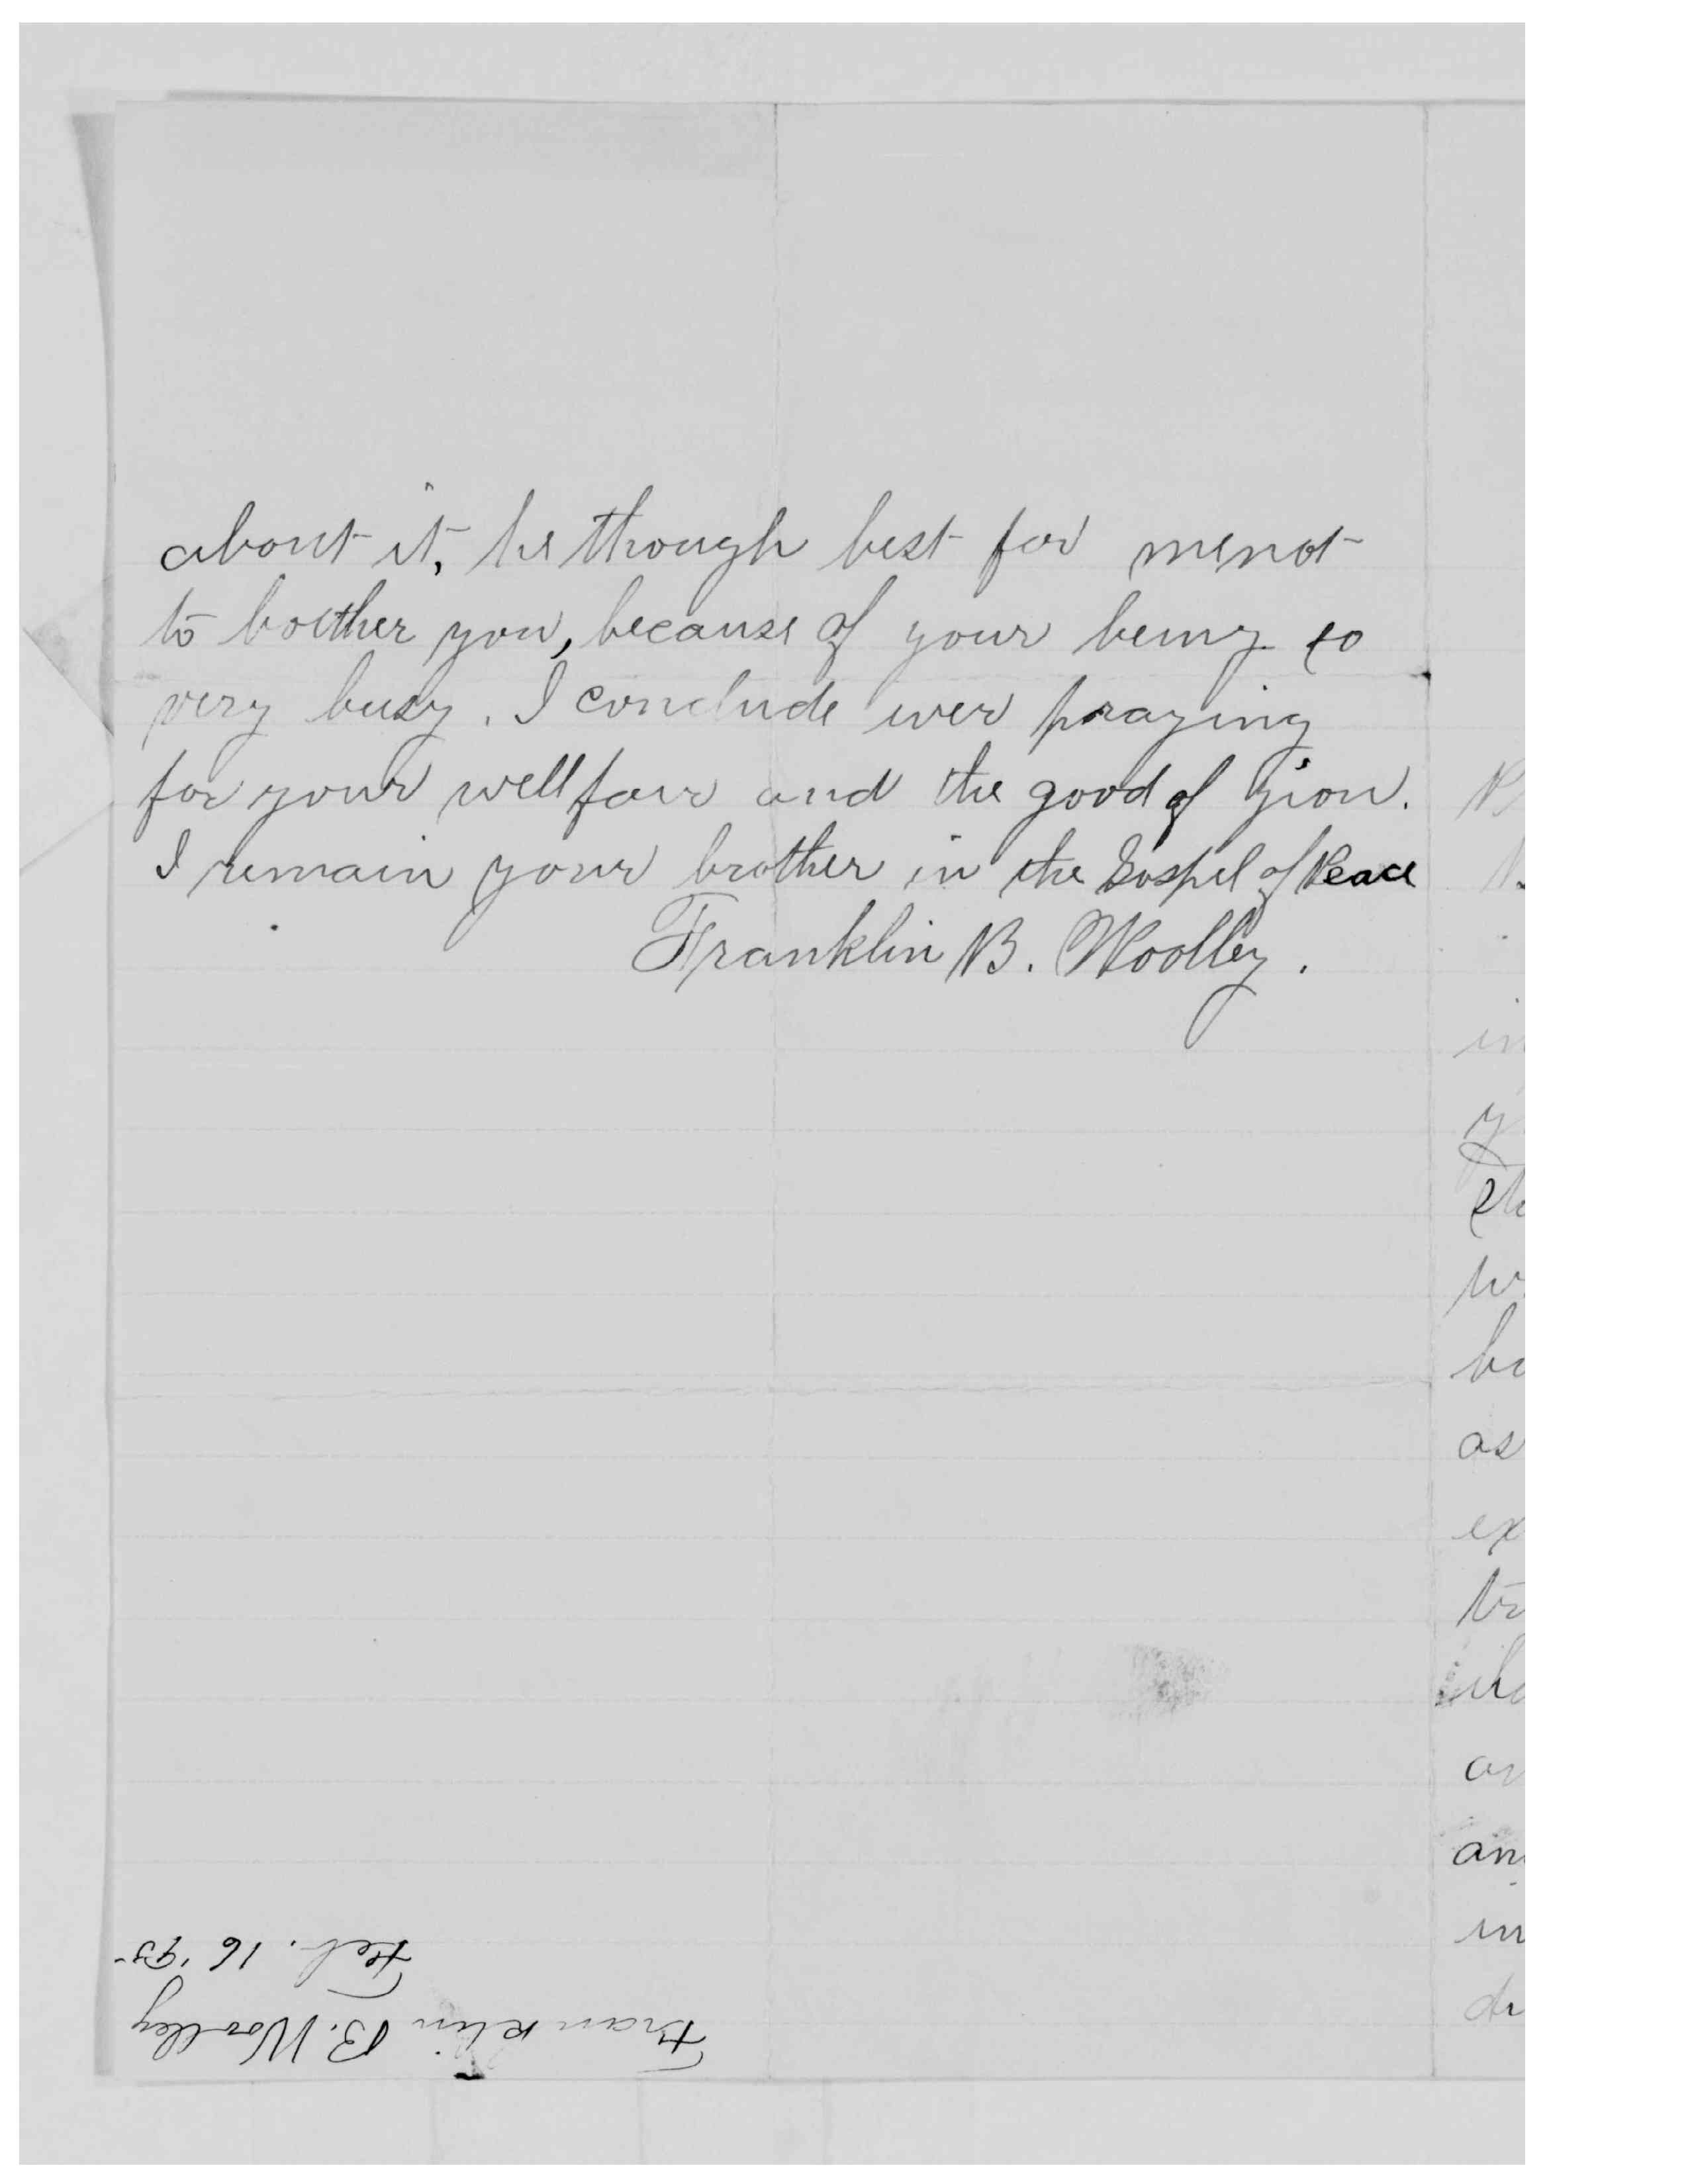 about it, he though best for me not
to boither you, because of your being so
very busy. I conclude ever praying
for your wellfair and the good of Zion.
I remain your brother in the Gospel of Peace
Franklin B. Woolley.
in
as
ex
an
in
Franklin B. Woolley
Feb. 16 '95